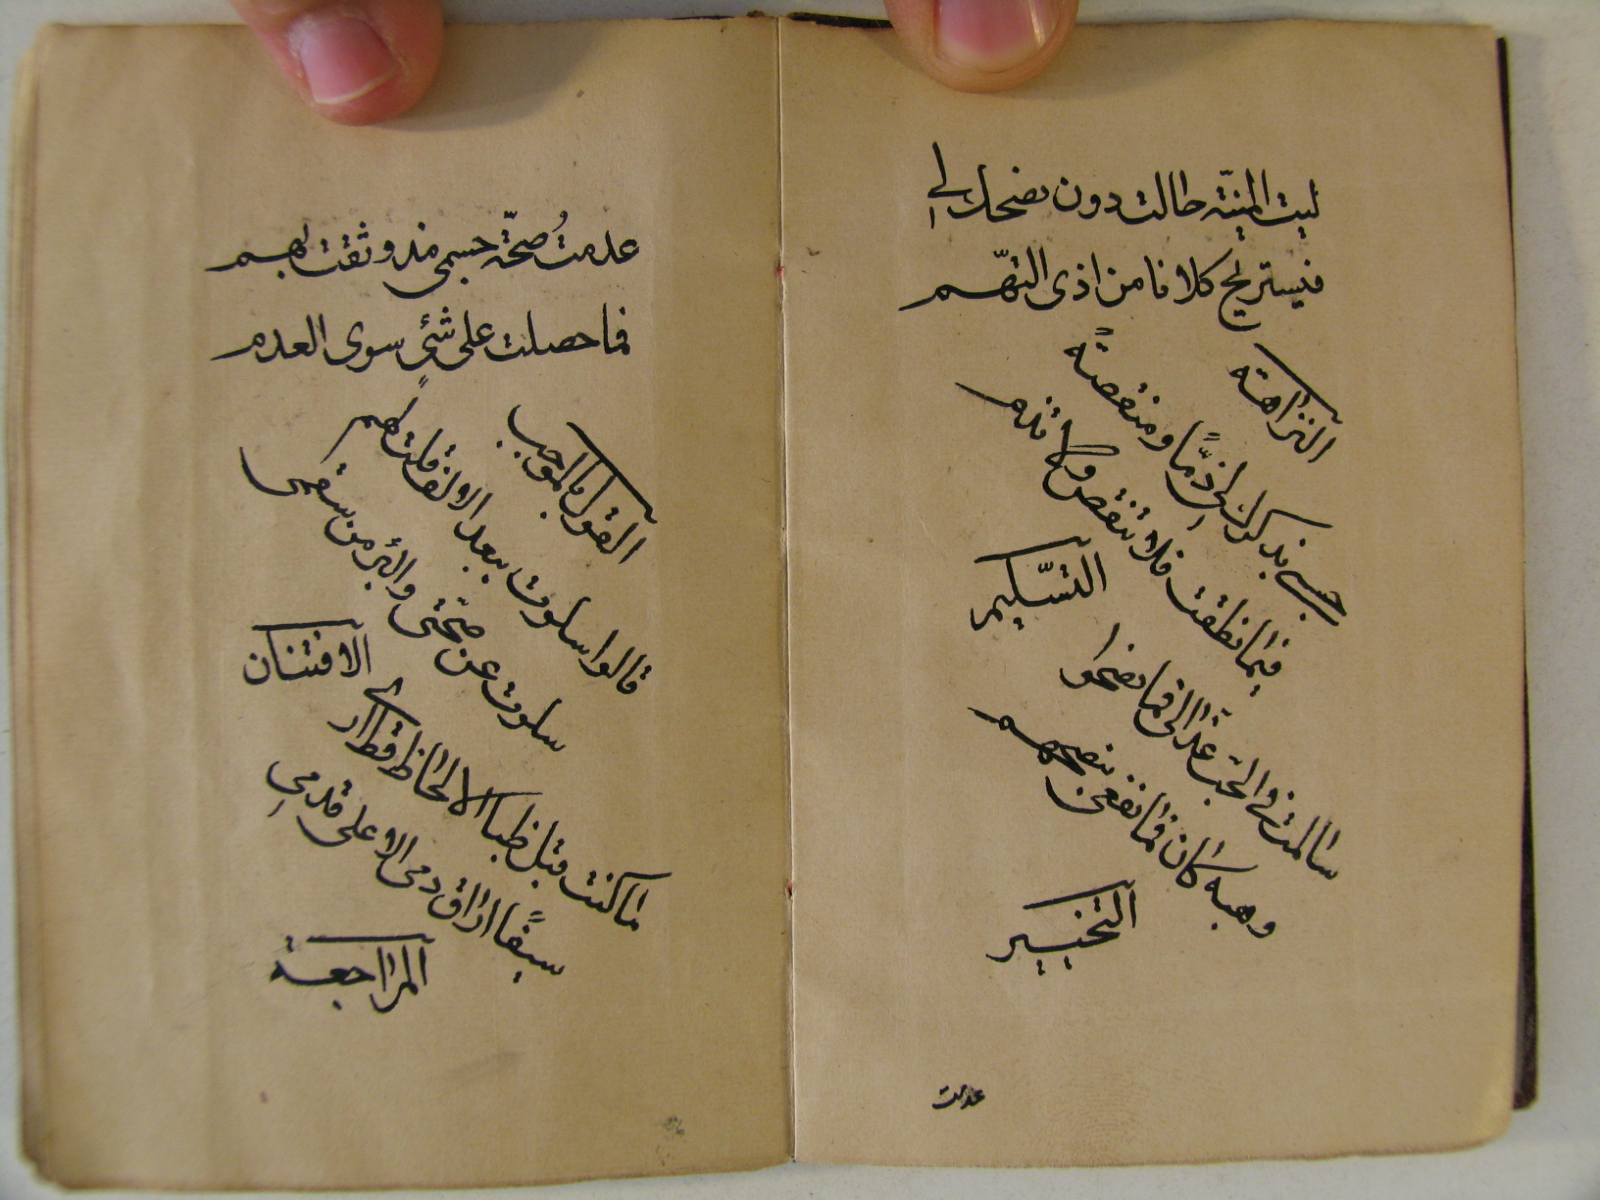 ليت المنيّة حالت دون نصحك لي
فيستريح كلانا من اذى التهم
النزاهة
حسبي بذكرك لي ذمًّا ومنقصةً
فيما نطقت فلا تنقص ولا تذم
التسليم
سالمت في الحبّ عذالي فما نصحوا
وهبه كان فما نفعي بنصحهم
التخيير
عدمت
عدمتُ صحّة جسمي مذ وثقت بهم
فما حصلت على شئٍ سوى العدم
القول بالموجب
قالوا سلوت ببعد الالف قلت لهم
سلوت عن صحّتي والبرء من سقمي
الافتنان
ما كنت قبل ظبا الالحاظ قط ارى
سيفًا اراق دمي الا على قدمي
المراجعة